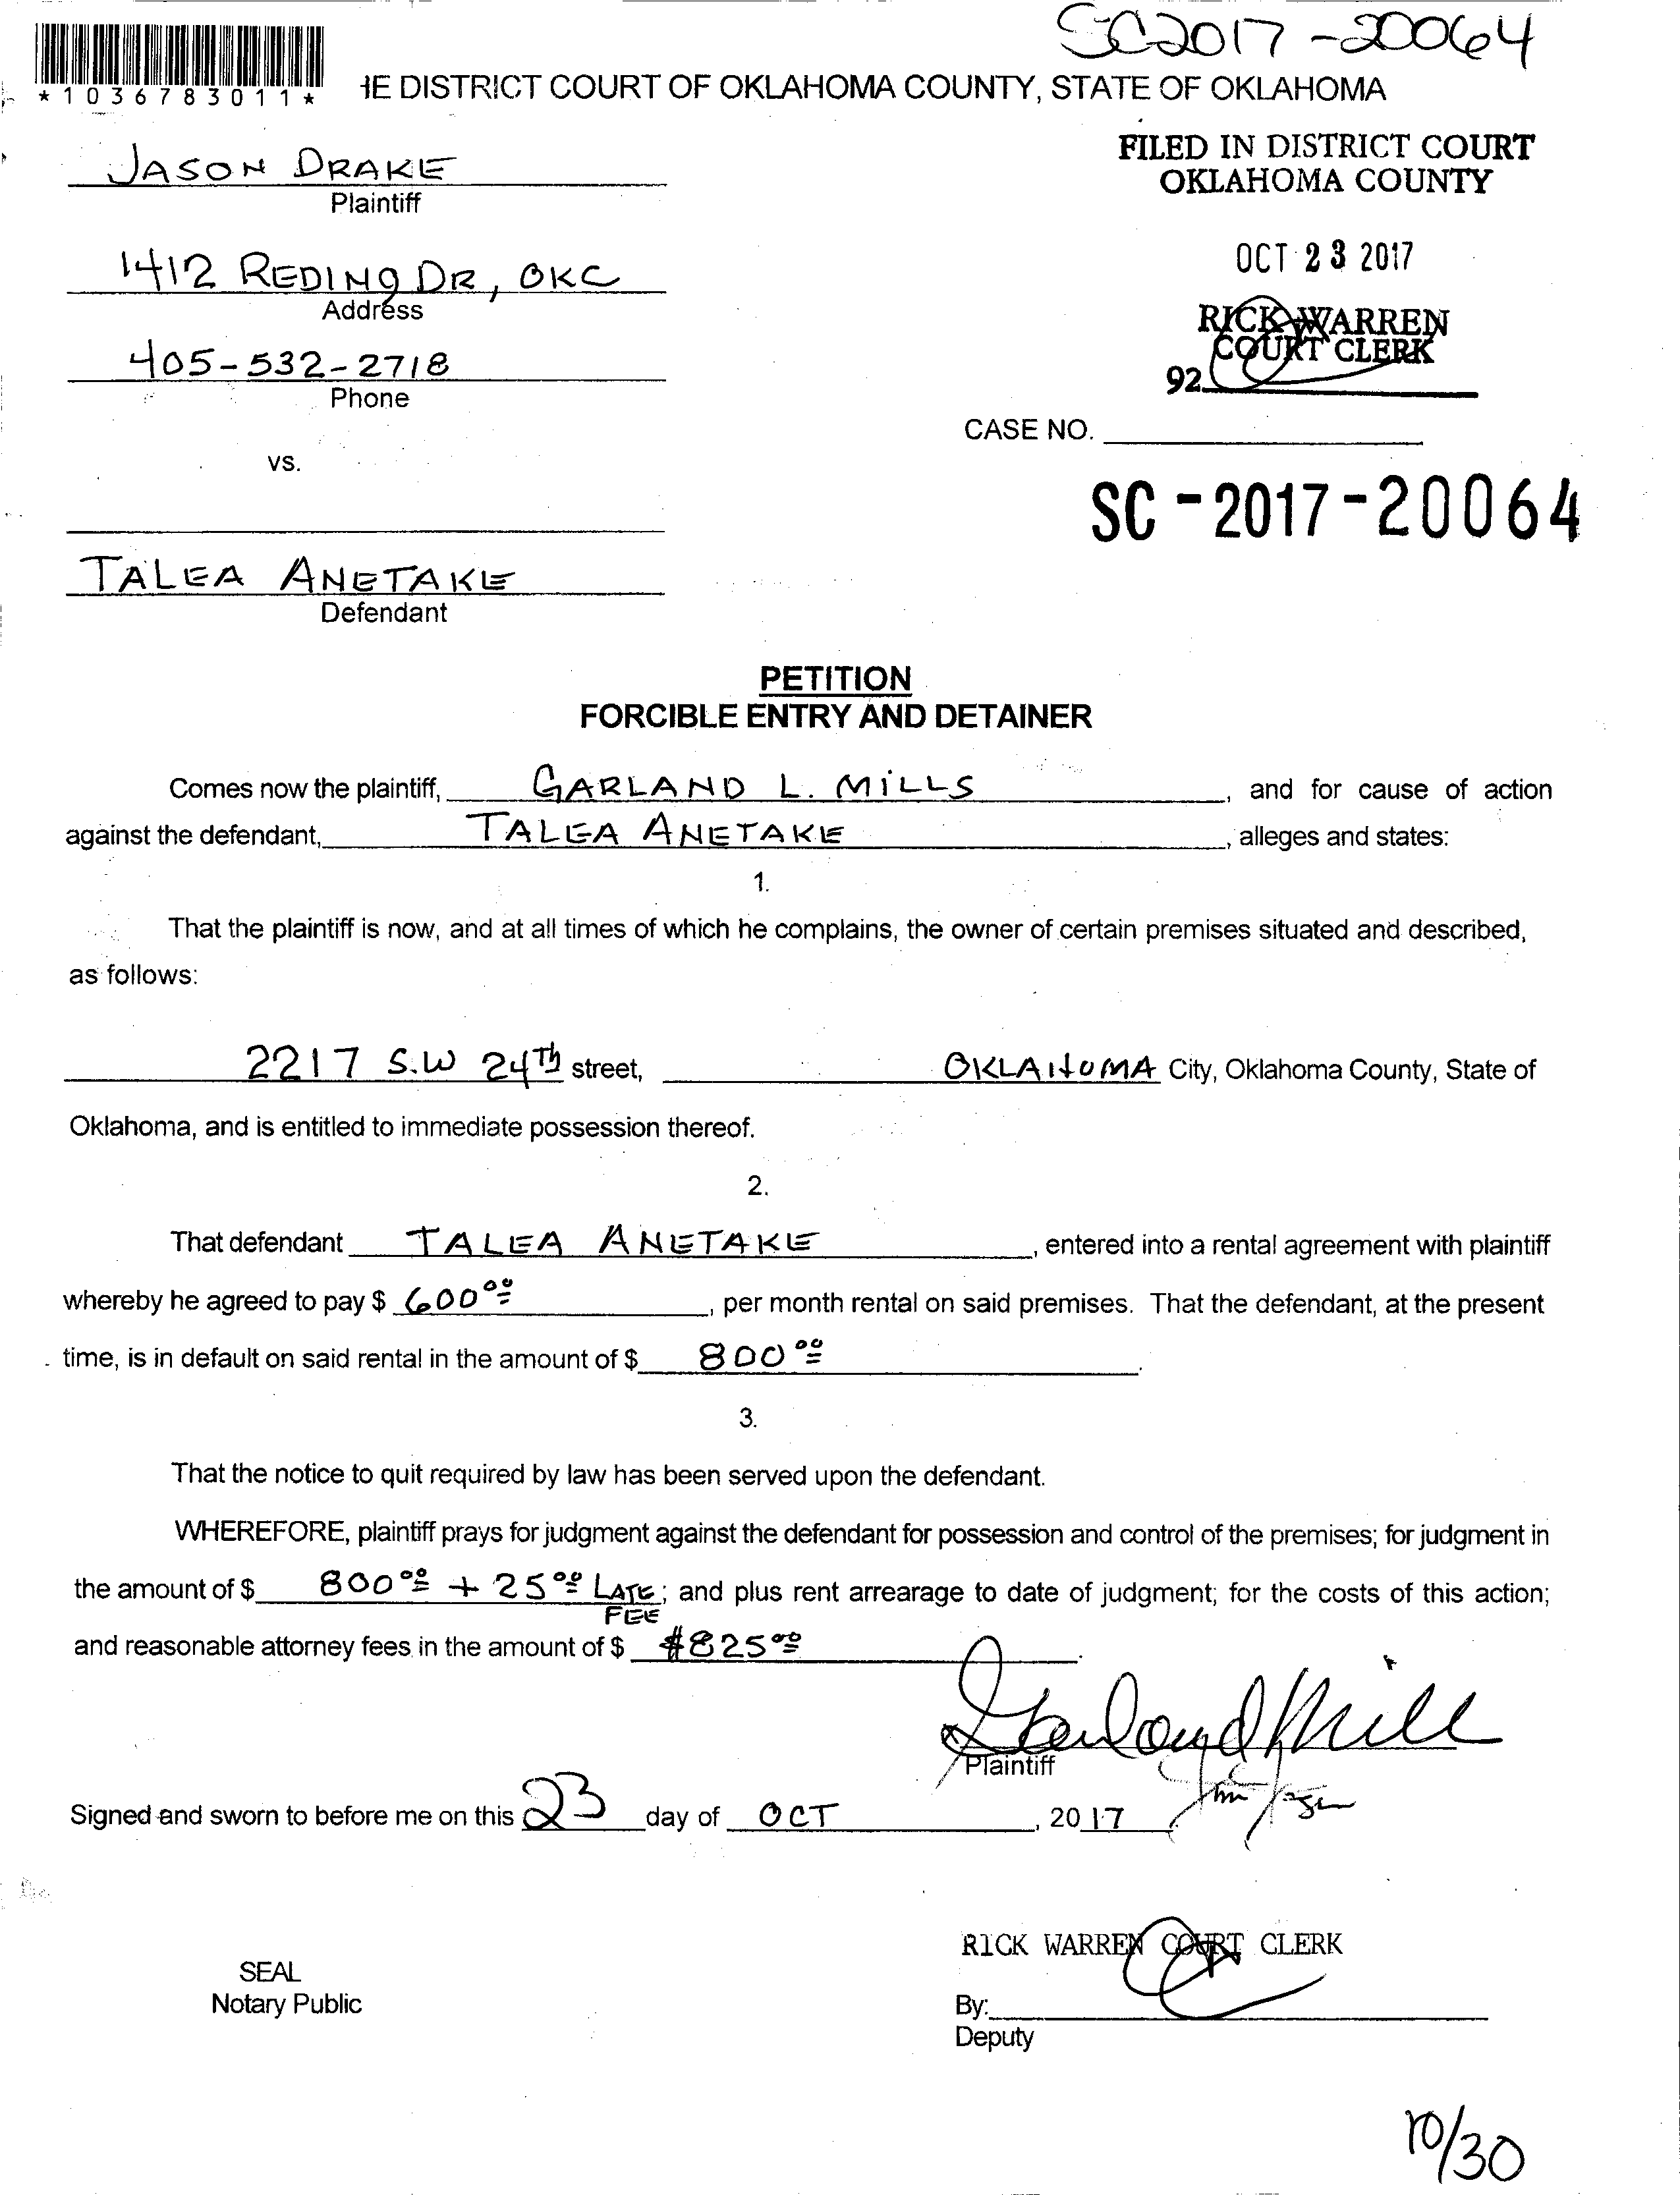 SC2017-20064
*1036783011*
HE DISTRICT COURT OF OKLAHOMA COUNTY, STATE OF OKLAHOMA
FILED IN DISTRICT COURT
OKLAHOMA COUNTY
JASON DRAKE
Plaintiff
OCT 23 2017
1412 REDING DR, OKC
Address
RICK WARREN
COURT CLERK
405-532-2718
92
Phone
CASE NO.
vs.
SC-2017-20064
TALEA ANETAKE
Defendant
PETITION
FORCIBLE ENTRY AND DETAINER
Comes now the plaintiff, GARLAND L. MILLS, and for cause of action
against the defendant, TALEA ANETAKE, alleges and states:
1.
That the plaintiff is now, and at all times of which he complains, the owner of certain premises situated and described,
as follows:
2217 S.W 24TH street, OKLAHOMA City, Oklahoma County, State of
Oklahoma, and is entitled to immediate possession thereof.
2.
That defendant TALEA ANETAKE, entered into a rental agreement with plaintiff
whereby he agreed to pay $ 600 00, per month rental on said premises. That the defendant, at the present
time, is in default on said rental in the amount of $ 800 00.
3.
That the notice to quit required by law has been served upon the defendant.
WHEREFORE, plaintiff prays for judgment against the defendant for possession and control of the premises; for judgment in
the amount of $ 800 00 + 25 00 LATE; and plus rent arrearage to date of judgment; for the costs of this action;
FEE
and reasonable attorney fees in the amount of $ $825 00.
Garland Mill
Plaintiff
Signed and sworn to before me on this 23 day of OCT, 2017.
RICK WARREN COURT CLERK
SEAL
Notary Public
By:
Deputy
10/30